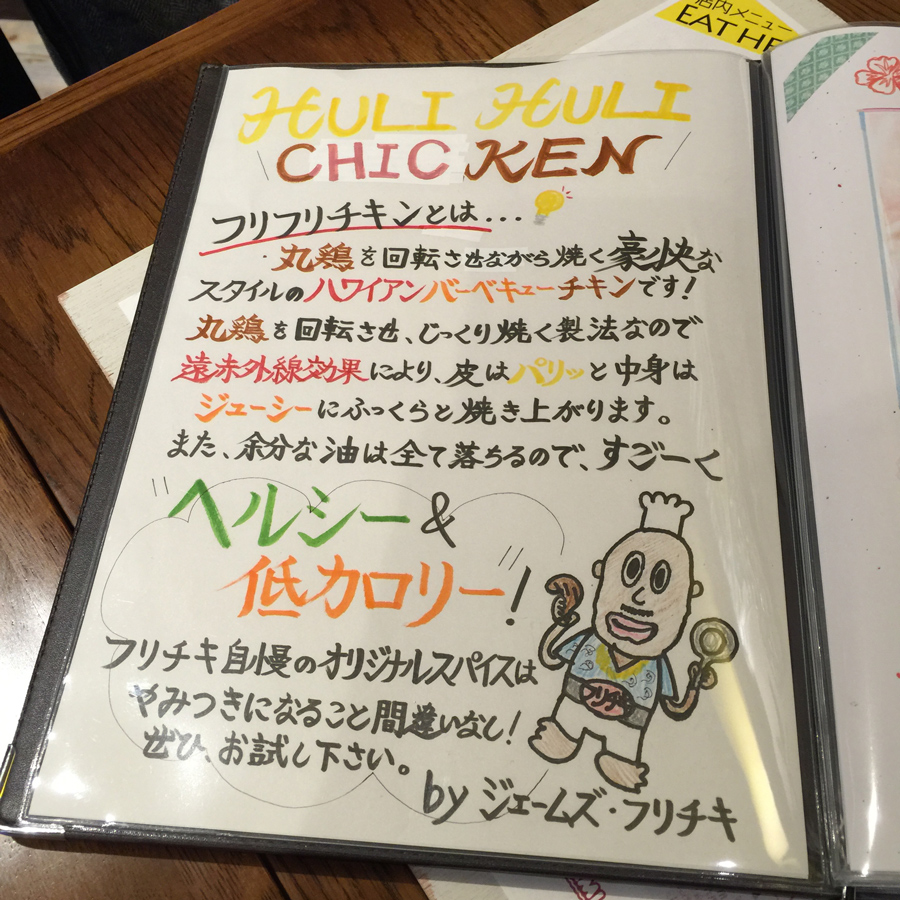 店内メニュー
EAT HE
HULI HULI
CHICKEN
フリフリチキンとは...
丸鶏を回転させながら焼く豪快な
スタイルのハワイアンバーベキューチキンです!
丸鶏を回転させ、じっくり焼く製法なので
遠赤外線効果により、皮はパリッと中身は
ジューシーにふっくらと焼き上がります。
また、余分な油は全て落ちるので、すごーく
"ヘルシー&
低カロリー"!
フリチキ自慢のオリジナルスパイスは
やみつきになること間違いなし!
ぜひ、お試し下さい。
フリチキ
by ジェームズ・フリチキ